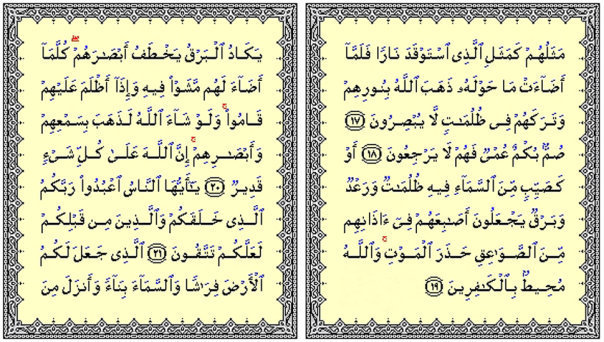 مَثَلُهُمْ كَمَثَلِ ٱلَّذِى ٱسْتَوْقَدَ نَارًا فَلَمَّآ
أَضَآءَتْ مَا حَوْلَهُۥ ذَهَبَ ٱللَّهُ بِنُورِهِمْ
وَتَرَكَهُمْ فِى ظُلُمَـٰتٍ لَّا يُبْصِرُونَ ١٧
صُمٌّۢ بُكْمٌ عُمْىٌ فَهُمْ لَا يَرْجِعُونَ ١٨ أَوْ
كَصَيِّبٍ مِّنَ ٱلسَّمَآءِ فِيهِ ظُلُمَـٰتٌ وَرَعْدٌ
وَبَرْقٌ يَجْعَلُونَ أَصَـٰبِعَهُمْ فِىٓ ءَاذَانِهِم
مِّنَ ٱلصَّوَٰعِقِ حَذَرَ ٱلْمَوْتِ ۚ وَٱللَّهُ
مُحِيطٌۢ بِٱلْكَـٰفِرِينَ ١٩
يَكَادُ ٱلْبَرْقُ يَخْطَفُ أَبْصَـٰرَهُمْ ۖ كُلَّمَآ
أَضَآءَ لَهُم مَّشَوْا۟ فِيهِ وَإِذَآ أَظْلَمَ عَلَيْهِمْ
قَامُوا۟ ۚ وَلَوْ شَآءَ ٱللَّهُ لَذَهَبَ بِسَمْعِهِمْ
وَأَبْصَـٰرِهِمْ ۚ إِنَّ ٱللَّهَ عَلَىٰ كُلِّ شَىْءٍ
قَدِيرٌ ٢٠ يَـٰٓأَيُّهَا ٱلنَّاسُ ٱعْبُدُوا۟ رَبَّكُمُ
ٱلَّذِى خَلَقَكُمْ وَٱلَّذِينَ مِن قَبْلِكُمْ
لَعَلَّكُمْ تَتَّقُونَ ٢١ ٱلَّذِى جَعَلَ لَكُمُ
ٱلْأَرْضَ فِرَٰشًا وَٱلسَّمَآءَ بِنَآءً وَأَنزَلَ مِنَ